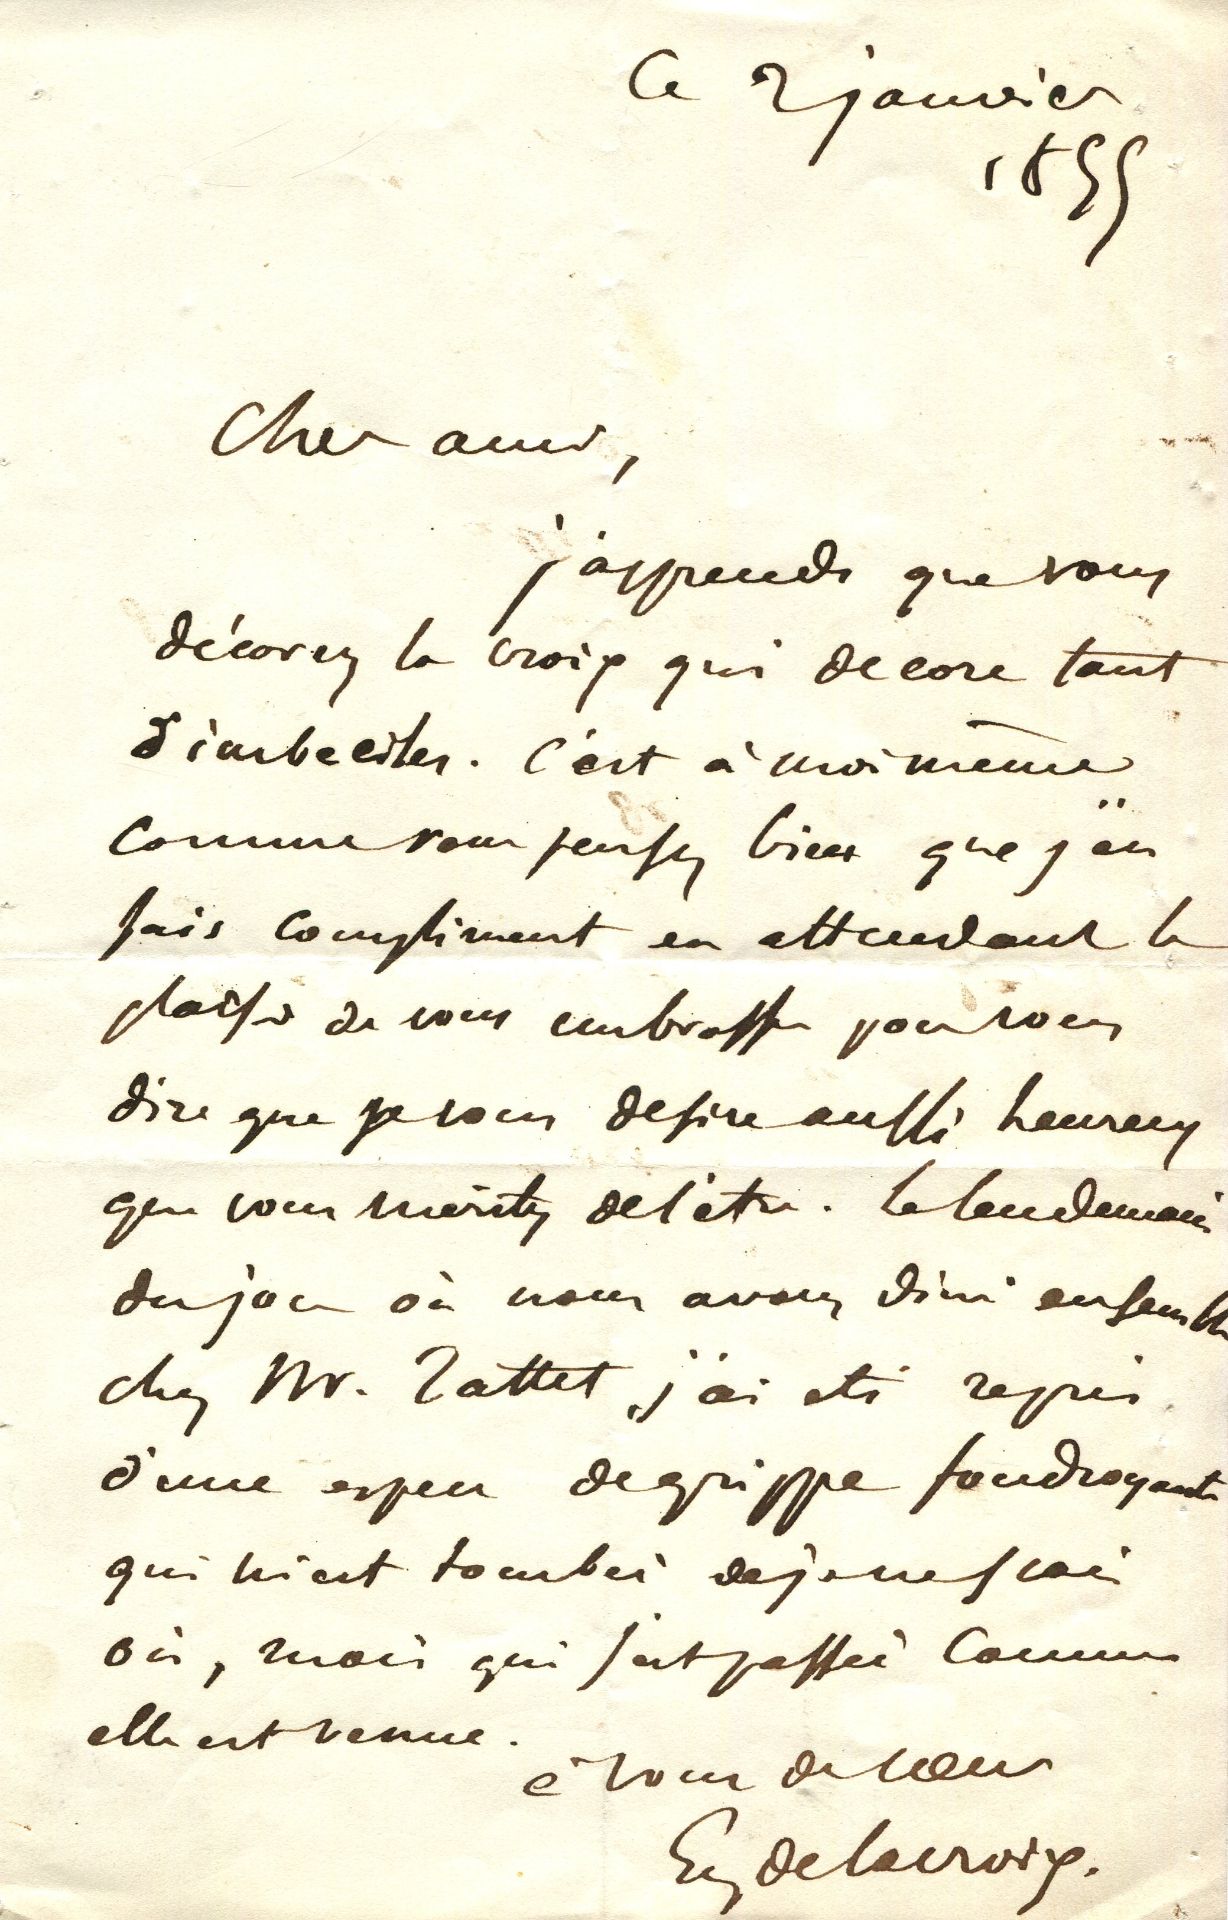 Ce 2 janvier
1855
Cher ami,
j'apprends que vous
décorez la croix qui decore tant
d'imbeciles. C'est à moi même
comme vous pensez bien que j'en
fais compliment en attendant le
plaisir de vous embrasser pour vous
dire que je vous desire aussi heureux
que vous meritez de l'etre. Le lendemain
du jour où nous avons diné ensemble
chez Mr. Tattet, j'ai eté repris
d'une espece de grippe foudroyante
qui m'est tombée de je ne scais
où, mais qui s'est passée comme
elle est venue.
à vous de coeur
Eug delacroix.